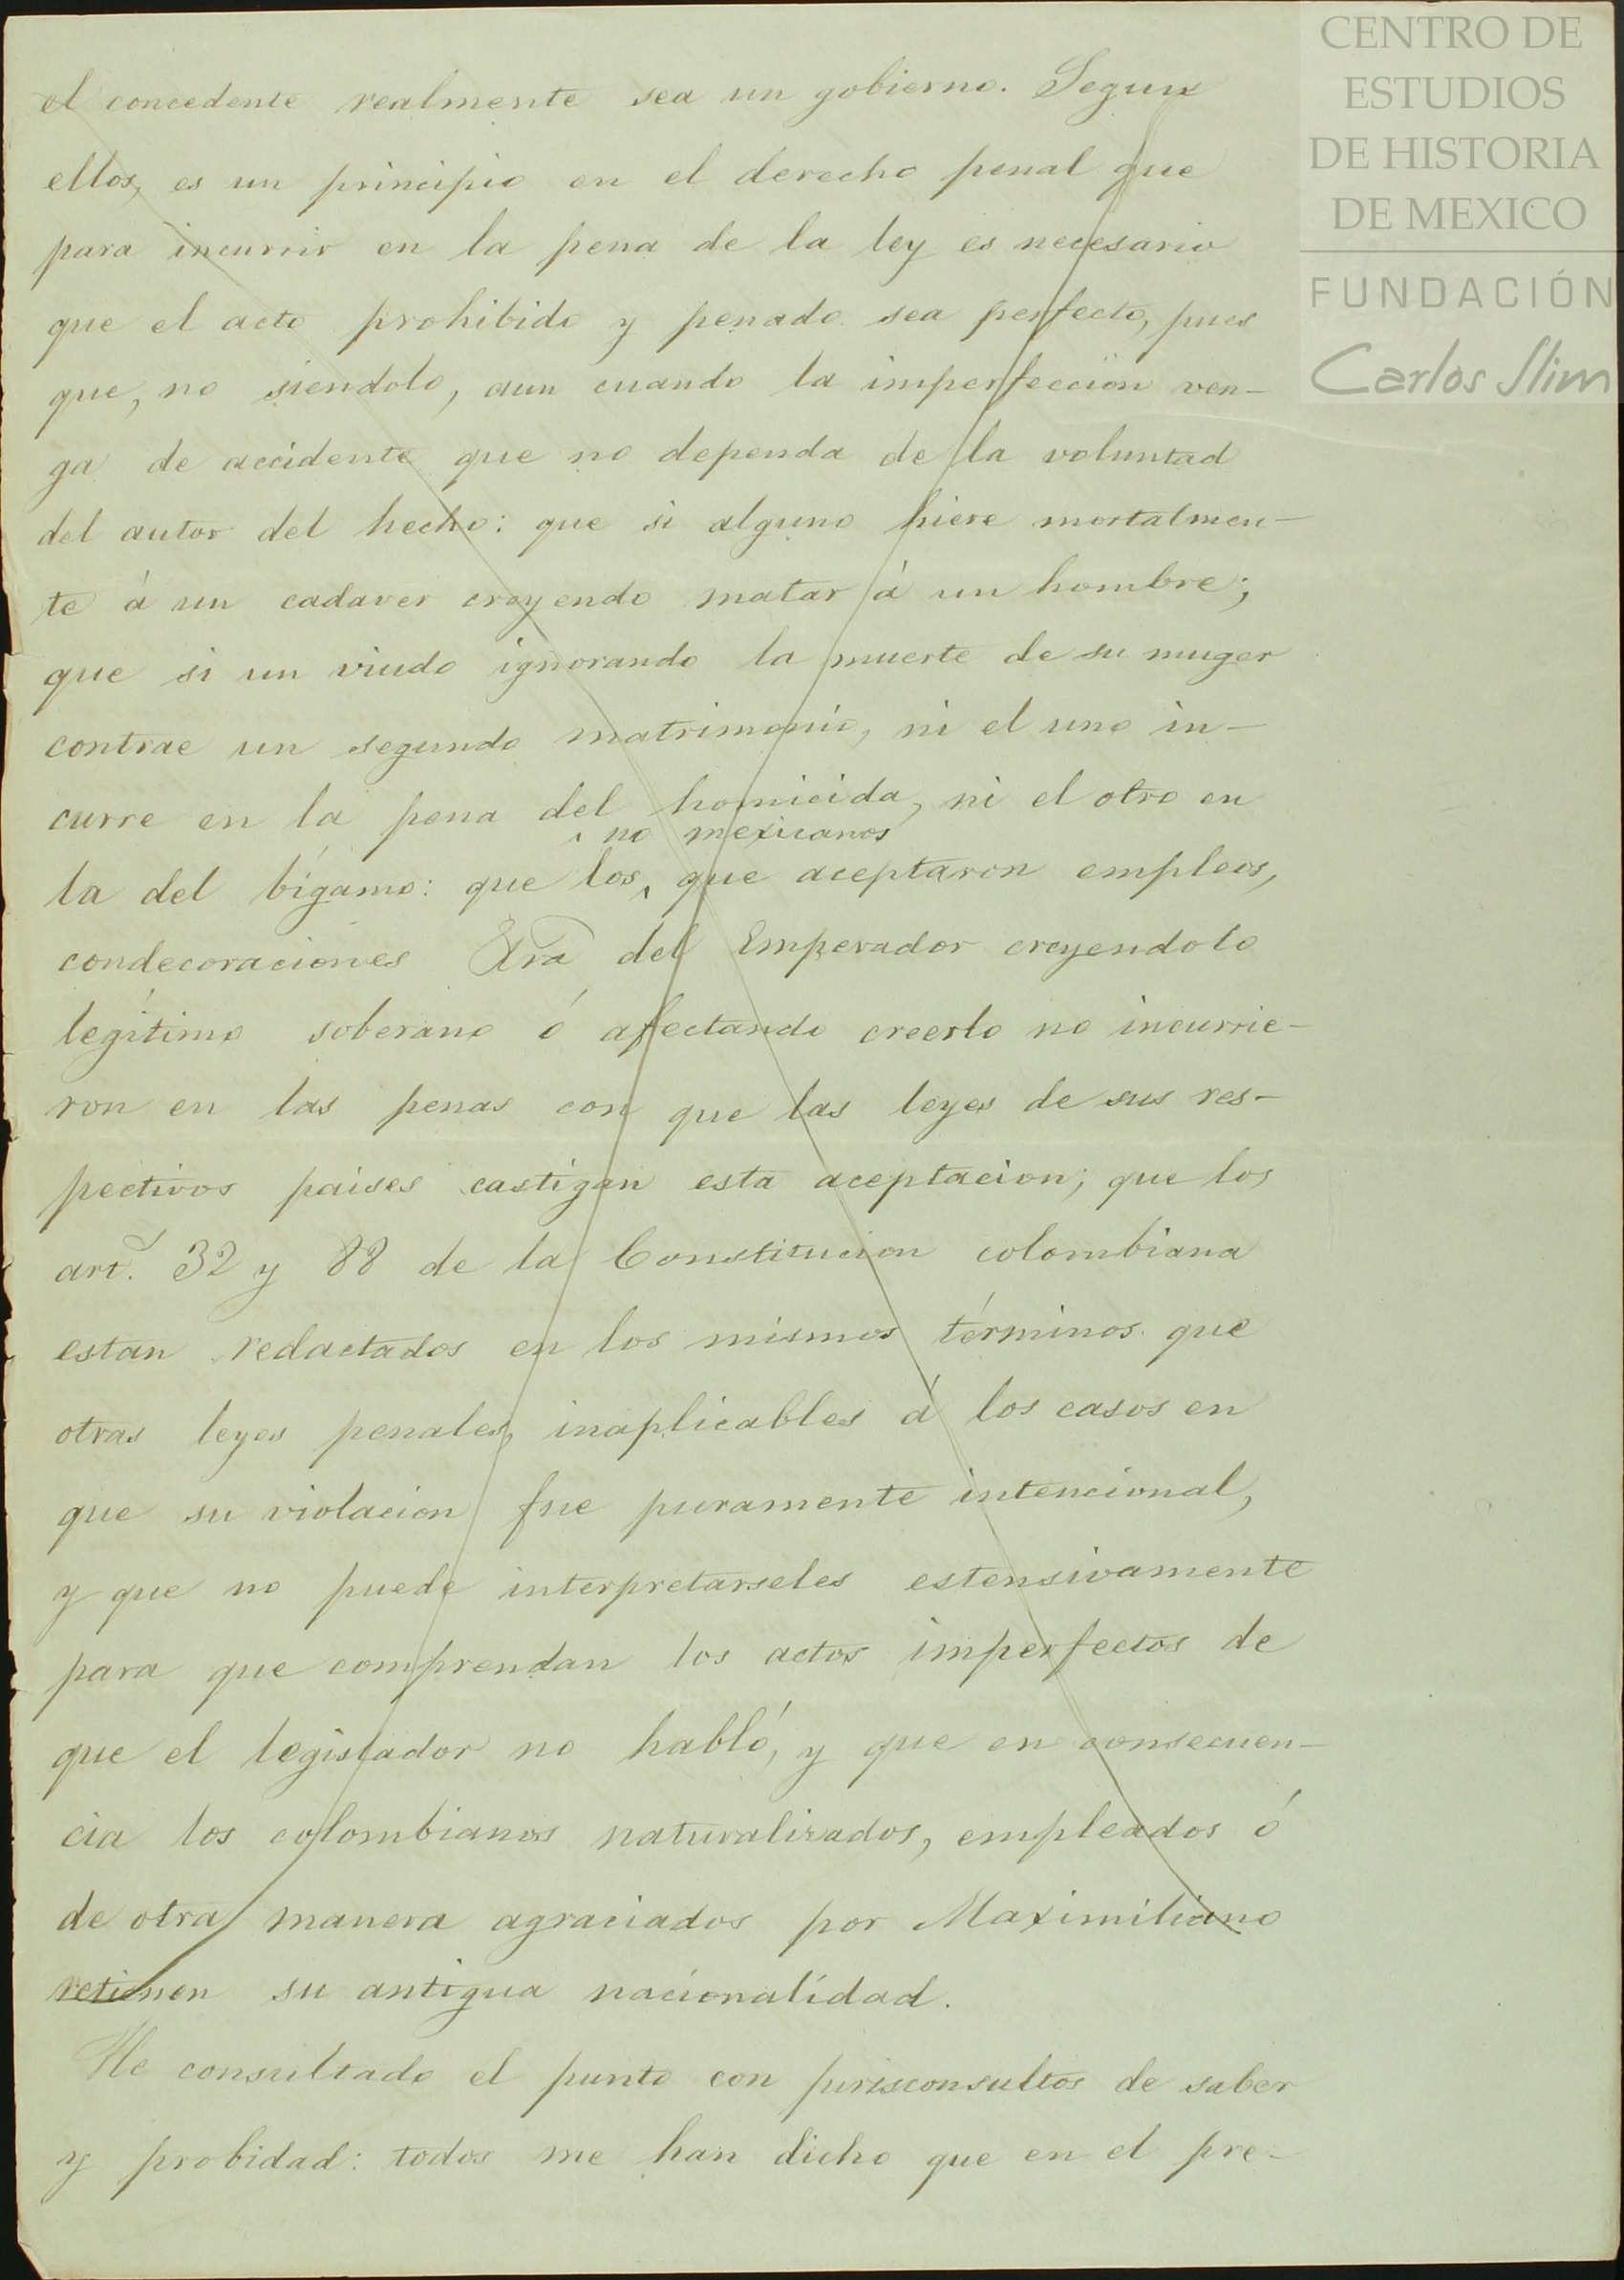 CENTRO DE
ESTUDIOS
DE HISTORIA
DE MEXICO
FUNDACIÓN
Carlos Slim
el concedente realmente sea un gobierno. Segun
ellos, es un principio en el derecho penal que
para incurrir en la pena de la ley es necesario
que el acto prohibido y penado sea perfecto, pues
que, no siendolo, aun cuando la imperfeccion ven-
ga de accidente que no dependa de la voluntad
del autor del hecho: que si alguno hiere mortalmen-
te á un cadaver creyendo matar á un hombre;
que si un viudo ignorando la muerte de su muger
contrae un segundo matrimonio, ni el uno in-
curre en la pena del homicida, ni el otro en
no mexicanos
la del bígamo: que los que aceptaron empleos,
condecoraciones del Emperador creyendolo
legítimo soberano ó afectando creerlo no incurrie-
ron en las penas con que las leyes de sus res-
pectivos paises castigan esta aceptacion; que los
art. 32 y 88 de la Constitucion colombiana
estan redactados en los mismos términos que
otras leyes penales, inaplicables á los casos en
que su violacion fue puramente intencional,
y que no puede interpretarseles estensivamente
para que comprendan los actos imperfectos de
que el legislador no habló, y que en consecuen-
cia los colombianos naturalizados, empleados ó
de otra manera agraciados por Maximiliano
retienen su antigua nacionalidad.
He consultado el punto con jurisconsultos de saber
y probidad: todos me han dicho que en el pre-